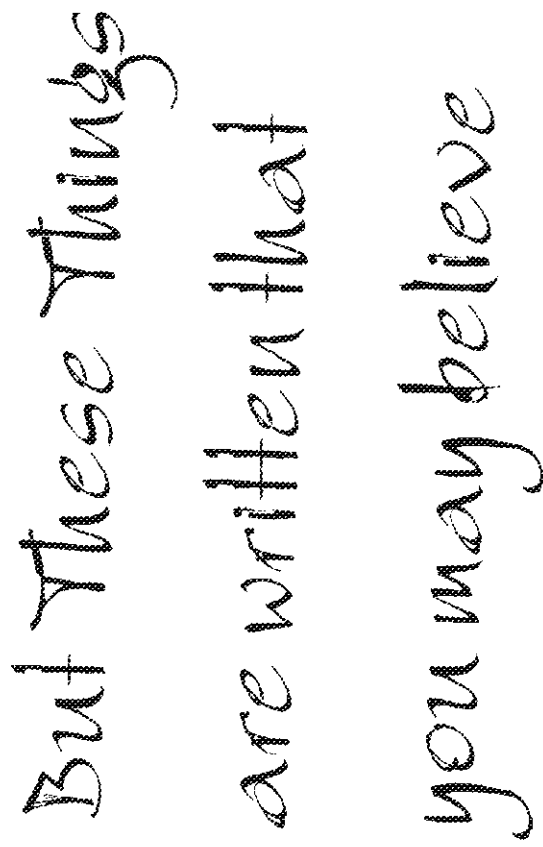 But These Things
are written that
you may believe